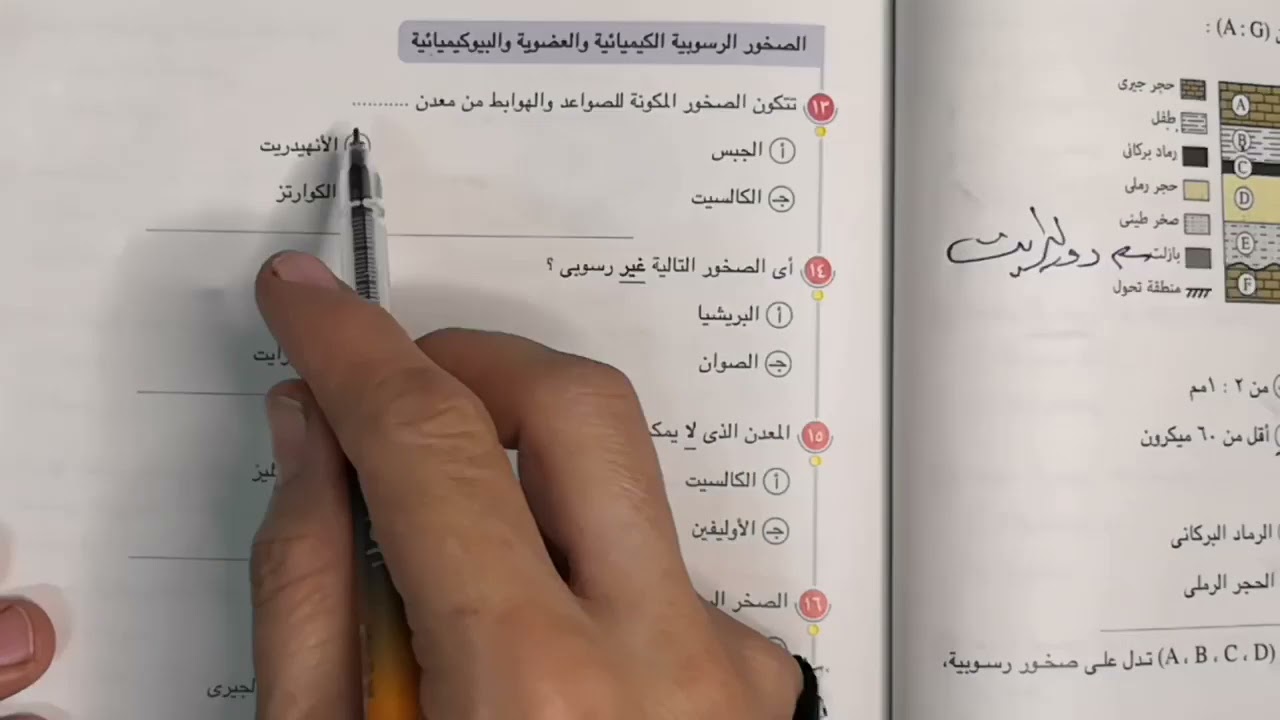 الصخور الرسوبية الكيميائية والعضوية والبيوكيميائية
١٣ تتكون الصخور المكونة للصواعد والهوابط من معدن ...........
أ الجبس
الأنهيدريت
جـ الكالسيت
الكوارتز
١٤ أى الصخور التالية غير رسوبى ؟
أ البريشيا
جـ الصوان
١٥ المعدن الذى لا
أ الكالسيت
جـ الأوليفين
١٦ الصخر
الجيرى
(A : G) :
حجر جيرى
طفل
رماد بركانى
حجر رملى
صخر طينى
بازلت
منطقة تحول
A
B
C
D
E
F
من ٢ : ١مم
أقل من ٦٠ ميكرون
الرماد البركانى
الحجر الرملى
(A ، B ، C ، D) تدل على صخور رسوبية،